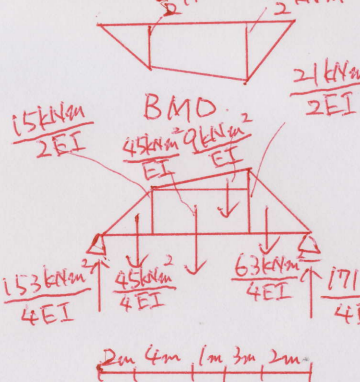 2
2
BMD.
15kNm/2EI
45kNm²/EI
9kNm²/EI
21kNm/2EI
153kNm²/4EI
45kNm²/4EI
63kNm²/4EI
171
4E
2m 4m 1m 3m 2m